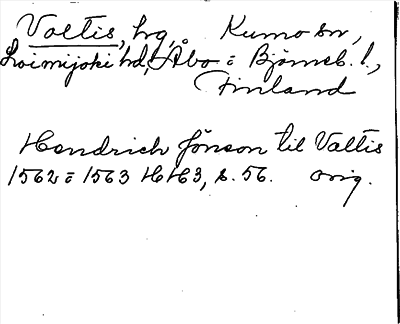 Valtis, hg, Kumo sn,
Loimijoki hd, Åbo = Björneb. l.,
Finland
Hendrich Jönson til Valtis
1562 = 1563 HH3, s. 56. orig.